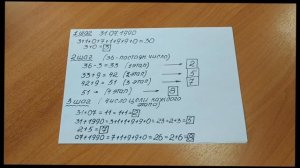 1 шаг 31.07.1990
3+1+0+7+1+9+9+0=30
3+0=3
2 шаг (36 - постоян. число)
36-3=33 (1 этап) 2
33+9=42 (2 этап) 5
42+9=51 (3 этап) 7
51 (4 этап) 8
3 шаг (число цели каждого этапа)
31+07=11=1+1=2
31+1990=3+1+1+9+9+0=23=2+3=5
2+5=7
07+1990=7+1+9+9+0=26=2+6=8